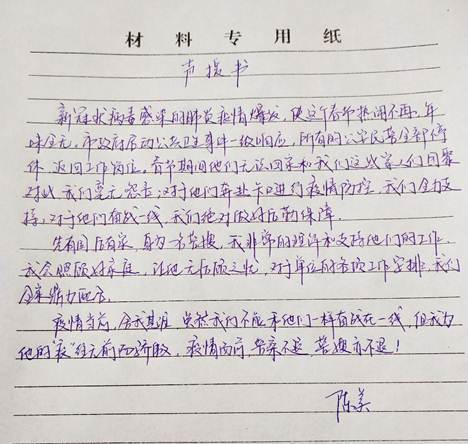 材料专用纸
声援书
新冠状病毒感染的肺炎疫情爆发，使这个春节热闹不再，年
味全无。市政府启动公共卫生事件一级响应，所有的公安民警全部停
休，返回工作岗位。春节期间他们无法回家和我们这些家人们团聚
对此，我们毫无怨言，对于他们奔赴卡口进行疫情防控，我们全力支
持，对于他们奋战一线，我们绝对做好后勤保障。
先有国后有家，身为一名警嫂，我非常的理解和支持他们的工作，
我会照顾好家庭，让他无后顾之忧，对于单位的各项工作安排，我们
全家鼎力配合。
疫情当前，舍我其谁，虽然我们不能和他们一样奋战在一线，但我为
他的"疫"往无前而骄傲，疫情面前，警察不退，警嫂亦不退！
陈美